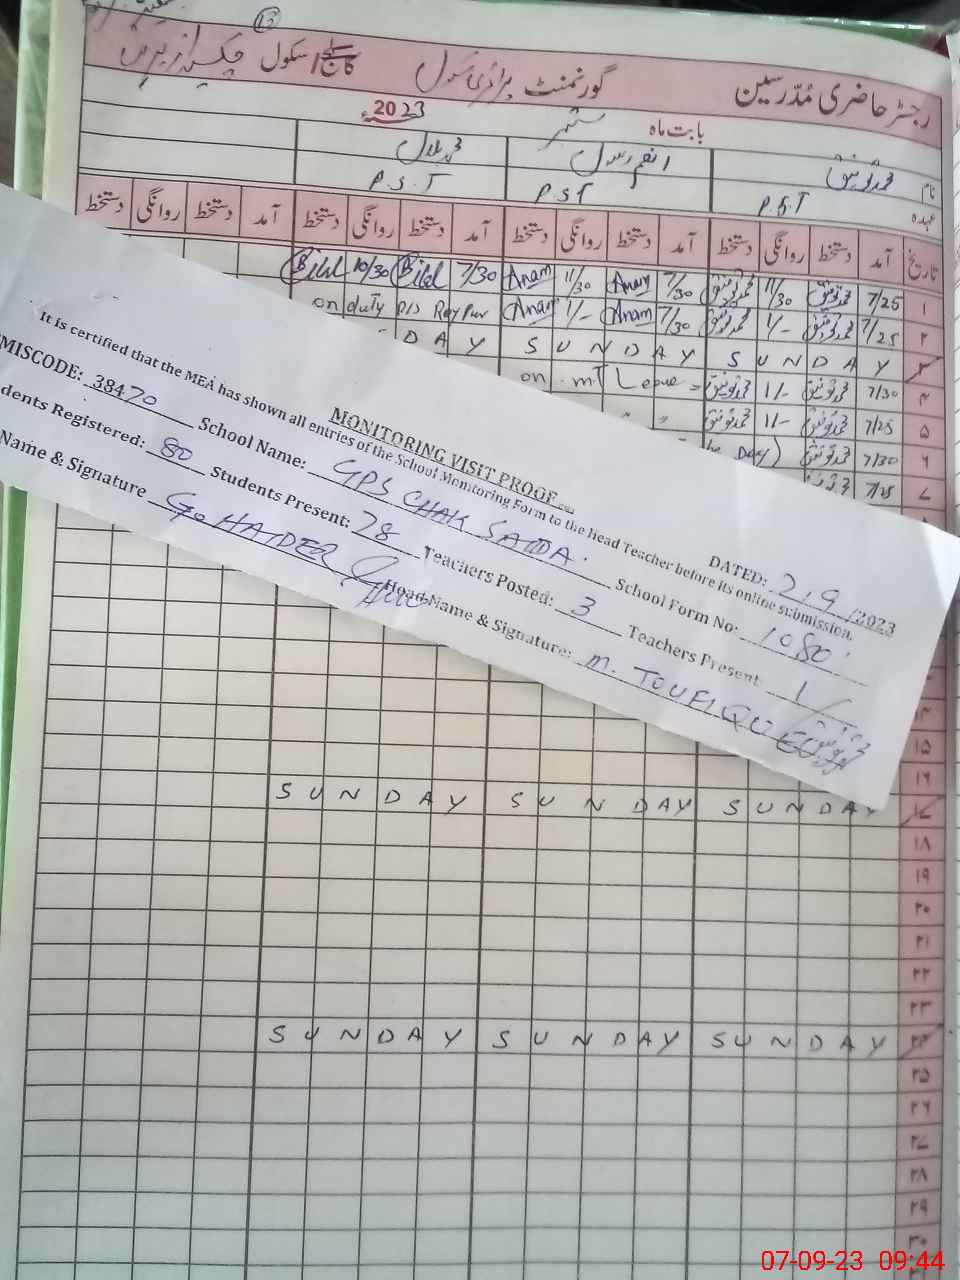 رجسٹر حاضری مُدّرسین گورنمنٹ پرائمری سکول کالج / سکول
بابت ماہ ستمبر 2023ء
نام محمد توفیق انعم رسول محمد بلال
عہدہ P.S.T P.S.T P.S.T
تاریخ آمد دستخط روانگی دستخط آمد دستخط روانگی دستخط آمد دستخط روانگی دستخط آمد دستخط روانگی دستخط
۱ 7/25 محمد توفیق 11/30 محمد توفیق 7/30 Anam 11/30 Anam 7/30 Bilal 10/30 Bilal
۲ 7/25 محمد توفیق 11/- محمد توفیق 7/30 Anam 11/- Anam on duty
۳ SUNDAY SUNDAY DAY
۴ 7/30 محمد توفیق 11/- محمد توفیق on Leave =
۵ 7/25 محمد توفیق 11/- محمد توفیق " "
۶ 7/30 محمد توفیق Day)
۷ 7/25
MONITORING VISIT PROOF
DATED: 2/9/2023
It is certified that the MEA has shown all entries of the School Monitoring Form to the Head Teacher before its online submission.
MISCODE: 38470 School Name: GPS CHAK SADDA School Form No: 1080
dents Registered: 80 Students Present: 78 Teachers Posted: 3 Teachers Present 1
Name & Signature G. HAIDER Head Name & Signature: M. TOUFIQUE
۱۵
۱۶
۱۷ SUNDAY SUNDAY SUNDAY
۱۸
۱۹
۲۰
۲۱
۲۲
۲۳
۲۴ SUNDAY SUNDAY SUNDAY
۲۵
۲۶
۲۷
۲۸
۲۹
۳۰
07-09-23 09:44